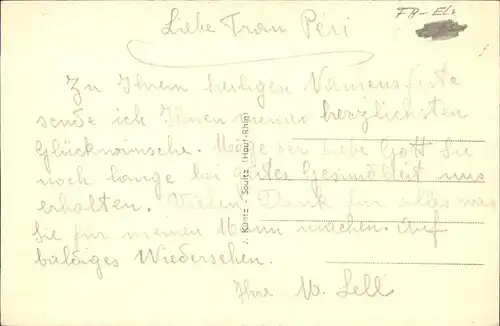 FR-Els
Liebe Frau Peri
Zu Ihrem heiligen Namensfeste
sende ich Ihnen meine herzlichsten
Glückwünsche. Möge der liebe Gott Sie
noch lange bei gutes Gesundheit uns
erhalten. Vielen Dank für alles was
Sie für meinen Mann machen. Auf
baldiges Wiedersehen.
Ihre M. Sell
J. Kuntz - Soultz (Haut-Rhin)